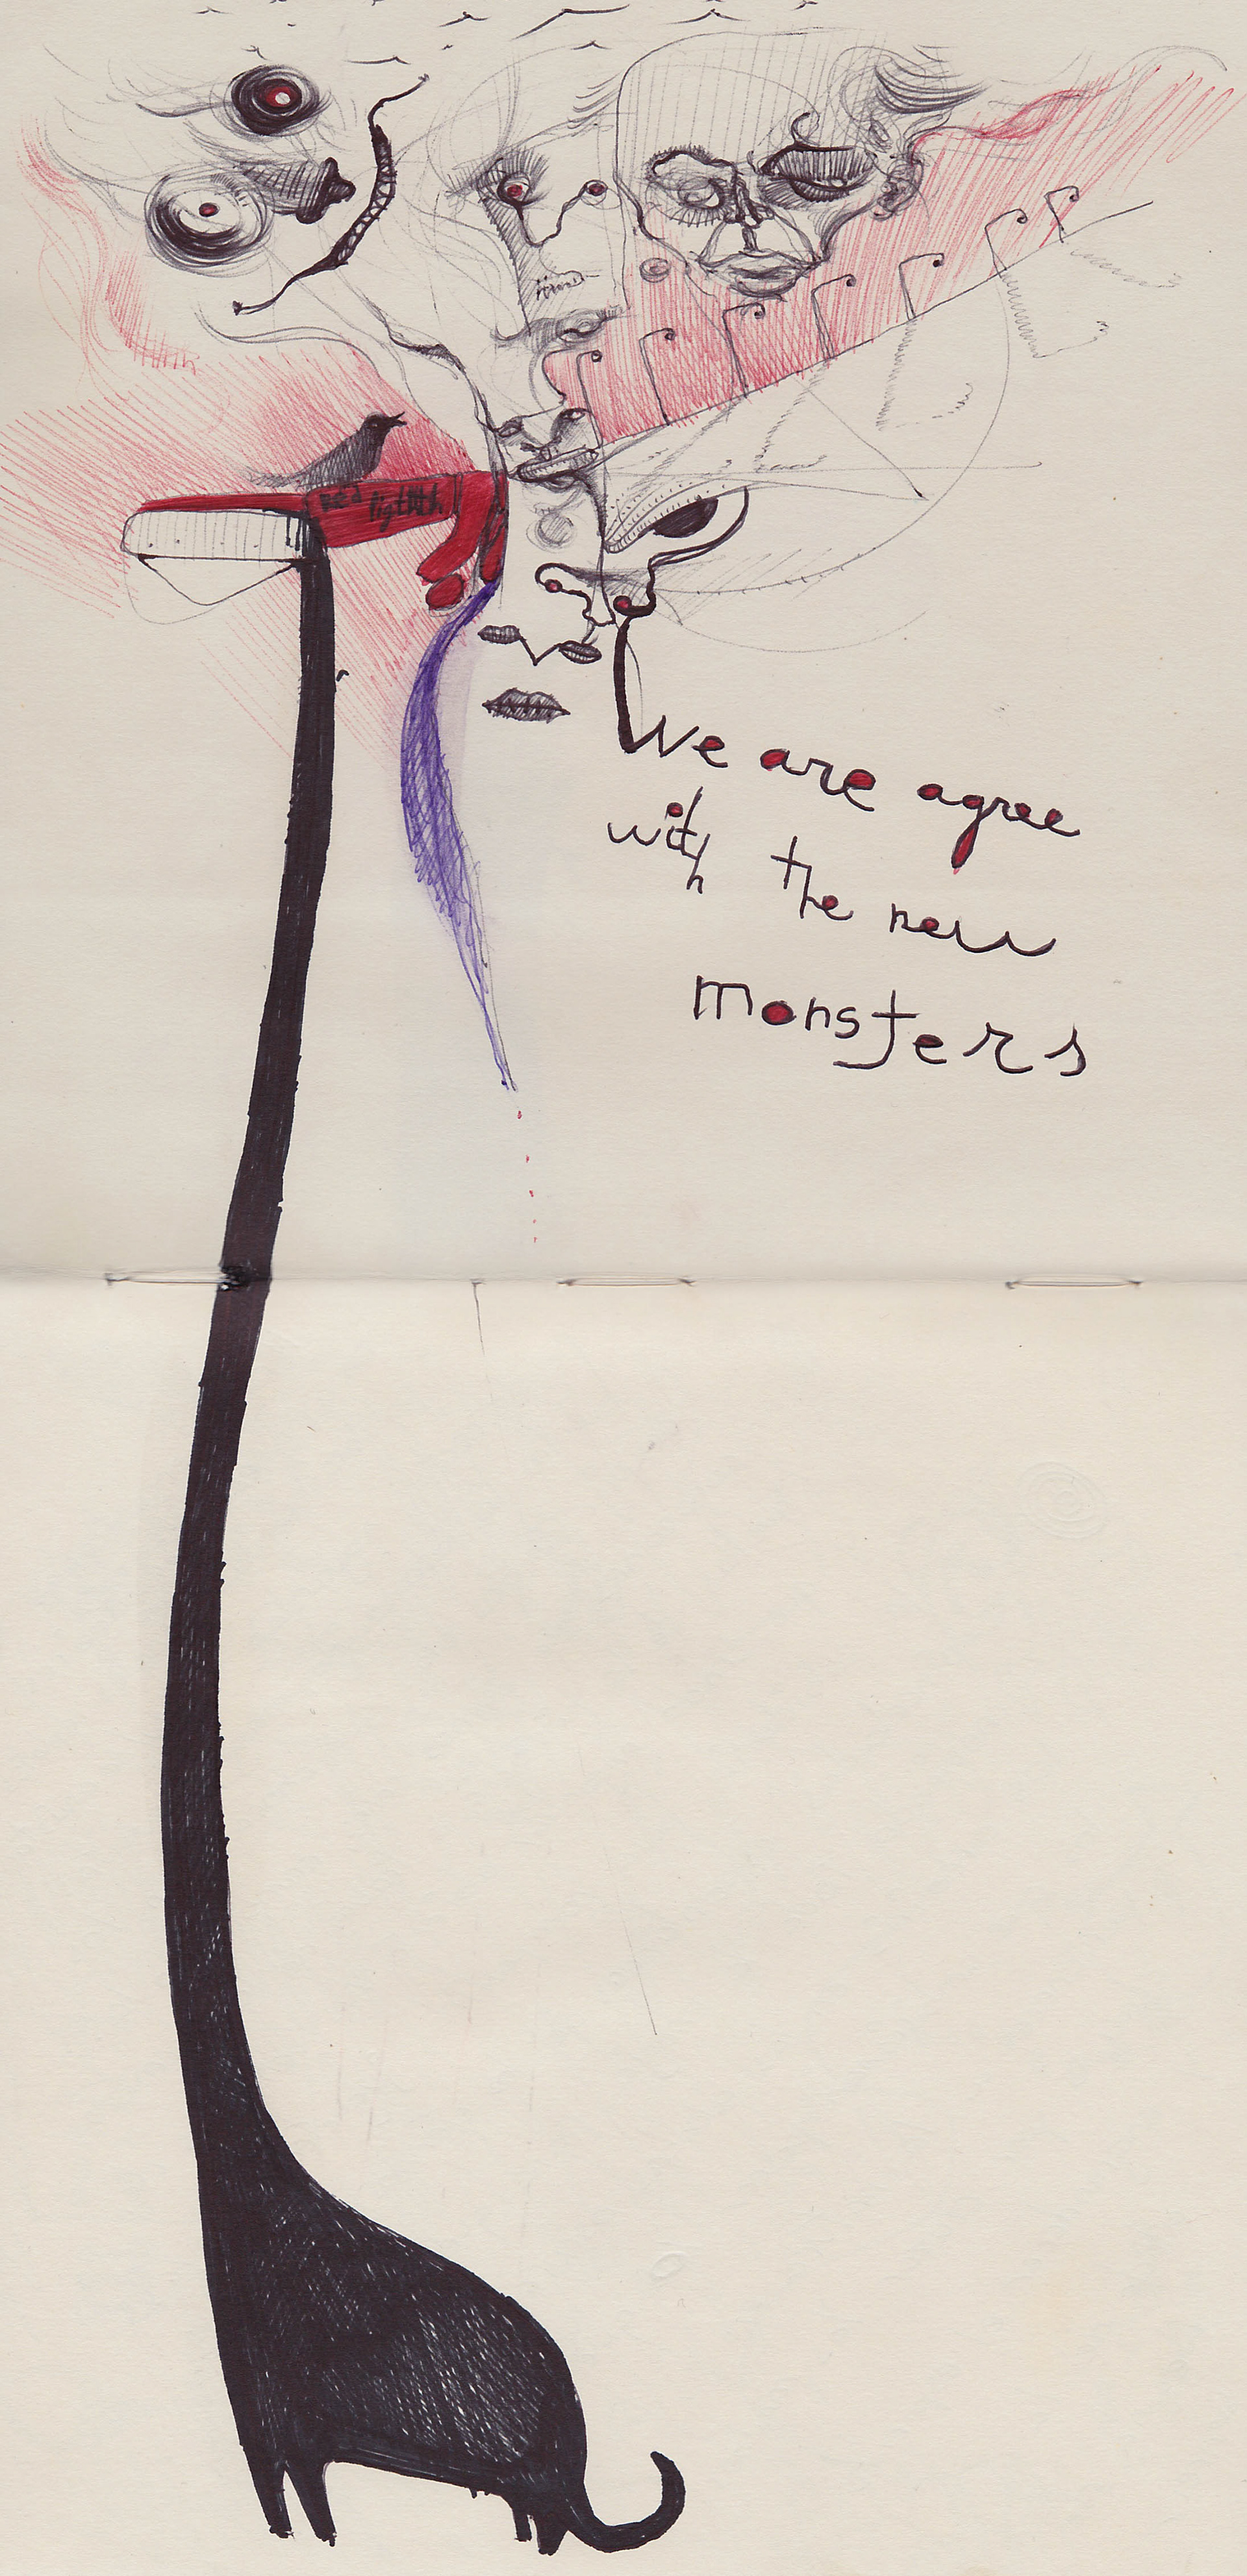 red lightth.
We are agree
with the new
monsters